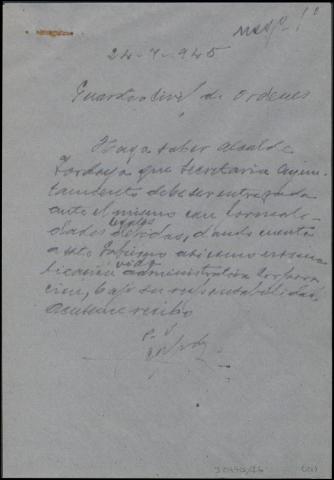 24-7-945
Guardia civil de Ordenes
Haga saber Alcalde
Tordoya que Secretaria Ayun-
tamiento debe ser entregada
ante el mismo con formali-
legales
dades debidas, dando cuenta
a este Gobierno asi como
vida administrativa Corpora-
cion, bajo su responsabilidad.
Acuseme recibo